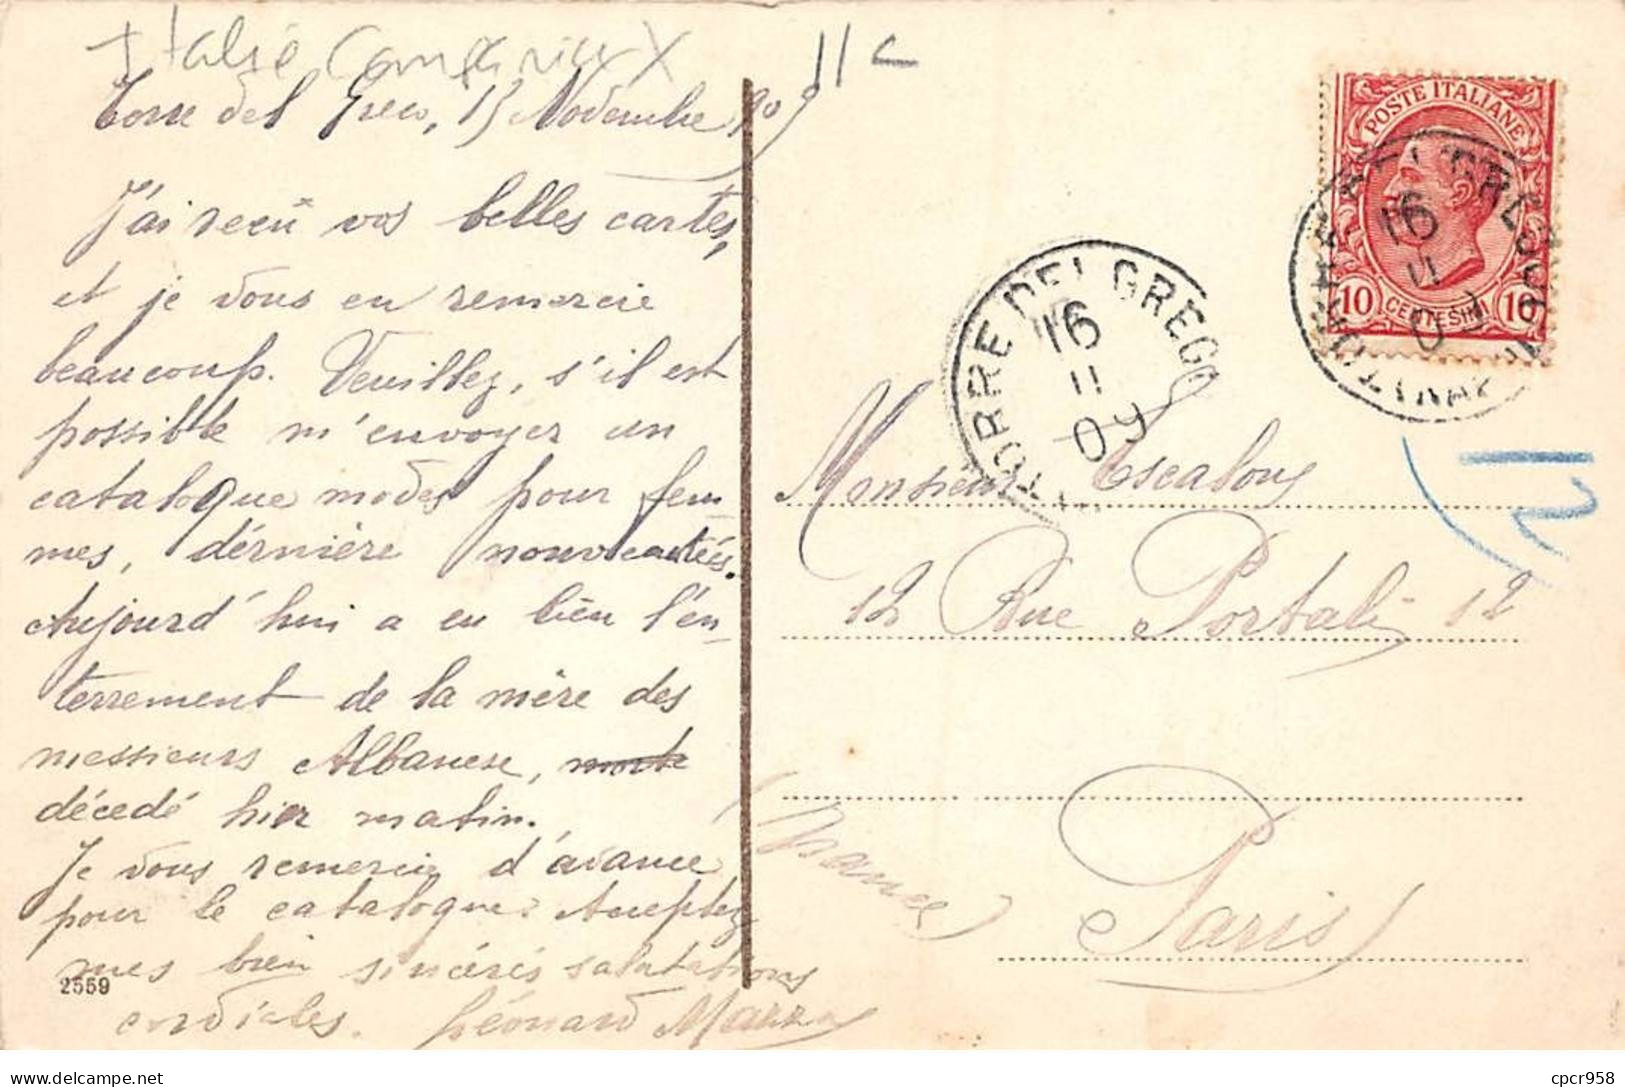 Italie
11
Torre del Greco, 15 Novembre 909
J'ai reçu vos belles cartes,
et je vous en remercie
beaucoup. Veuillez, s'il est
possible m'envoyer un
catalogue modes pour fem_
mes, dérnière nouveautéés.
Aujourd'hui a eu lieu l'en_
terrement de la mère des
messieurs Albanese, morte
décedé hier matin.
Je vous remercie d'avance
pour le catalogue. Acceptez
mes bien sincérés salutations
cordiales. Léonard
2559
POSTE ITALIANE
10 CENTESIMI 10
16
11
09
TORRE DEL GRECO
16
11
09
Monsieur Escalous
12 Rue Portalis 12
Paris
(France)
12
delcampe.net
cpcr958